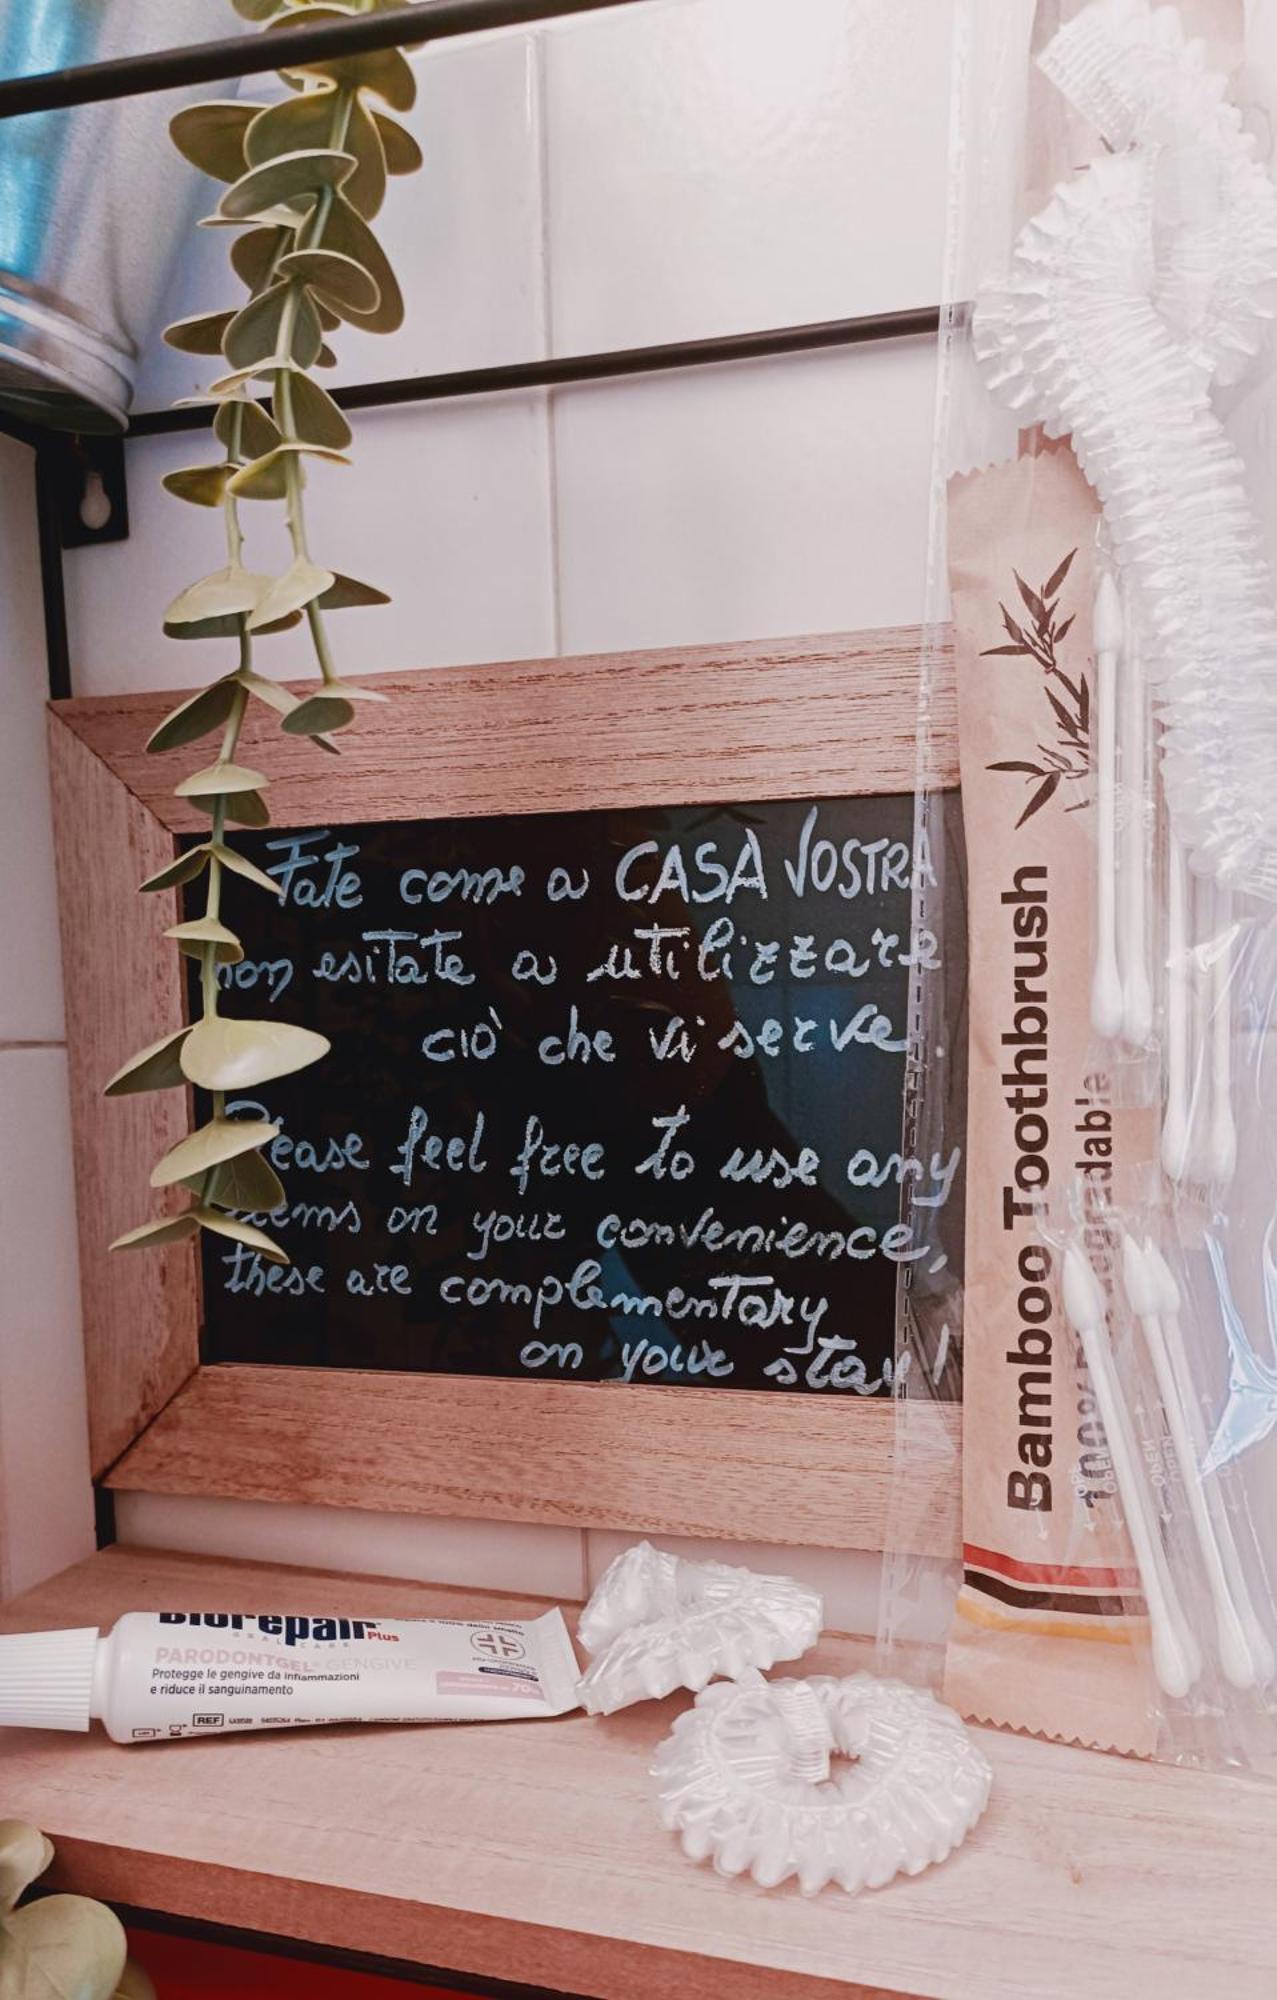 Fate come a CASA VOSTRA
non esitate a utilizzare
ciò che vi serve
Please feel free to use any
items on your convenience,
these are complementary
on your stay!
Bamboo Toothbrush
100%
Biorepair Plus
ORAL CARE
PARODONTGEL® GENGIVE
Protegge le gengive da infiammazioni
e riduce il sanguinamento
REF
OPEN
OPEN